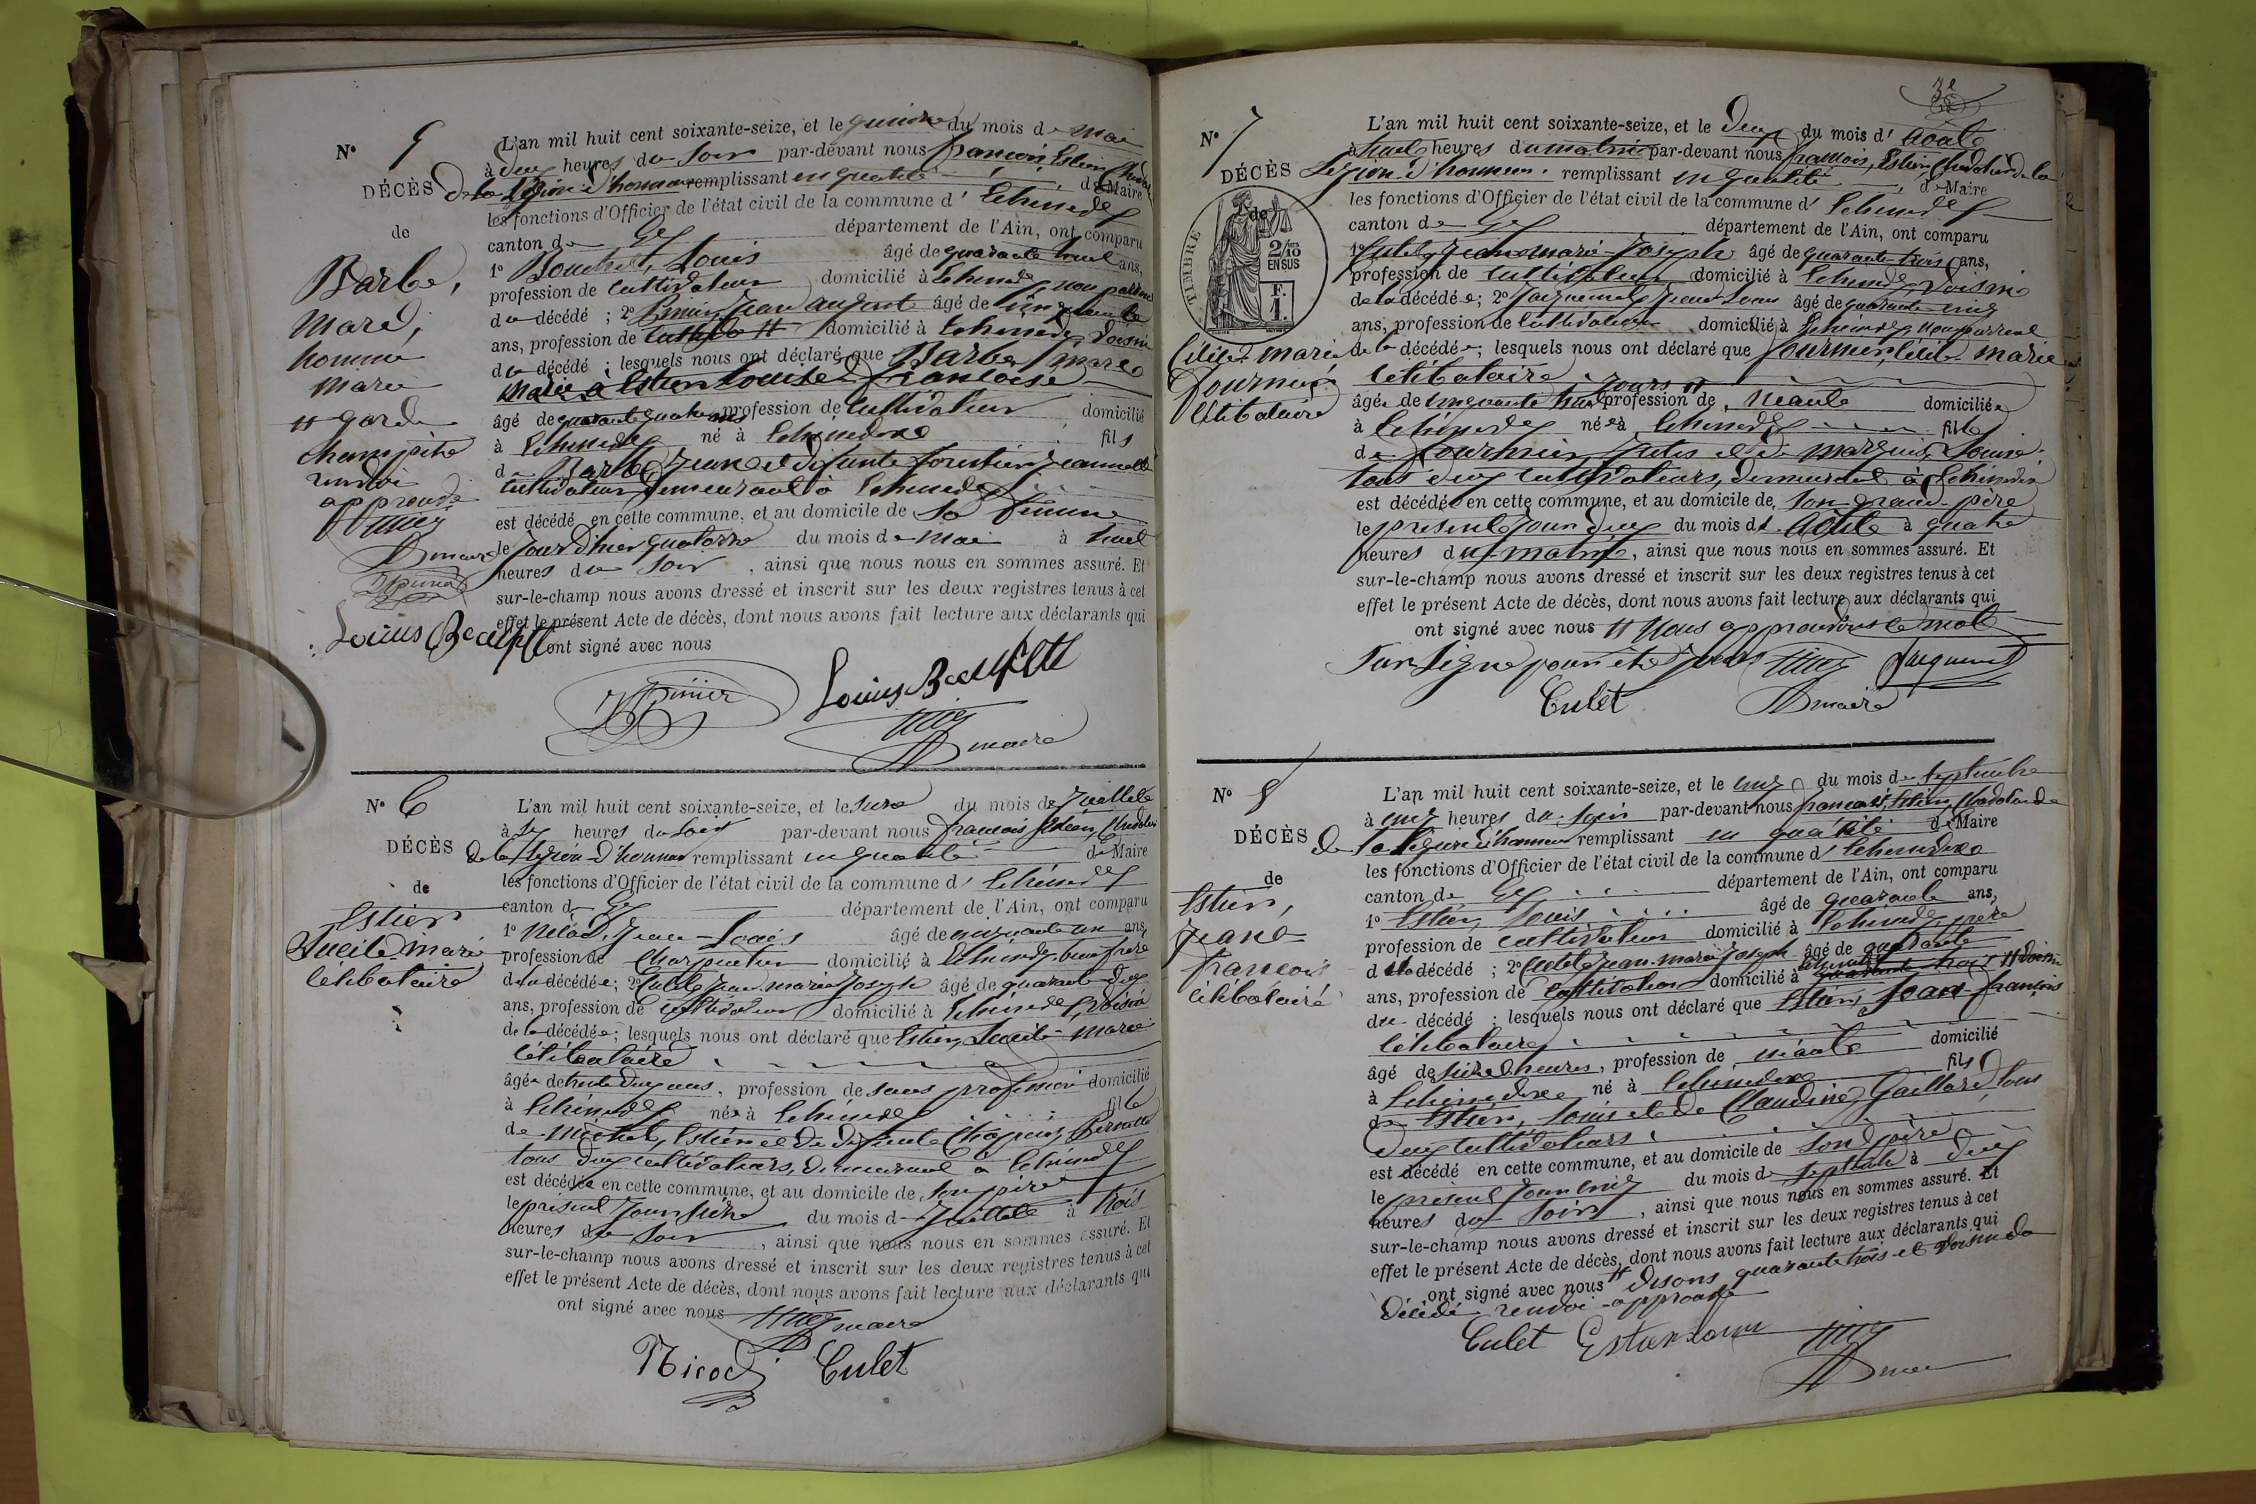 N° 5
DÉCÈS
de
Barbe,
Marc,
homme
marié
# garde
champêtre
renvoi
approuvé
maire
Louis
L'an mil huit cent soixante-seize, et le quinze du mois de Mai
à deux heures du soir par-devant nous françois, Estier,
de la légion d'honneur remplissant en qualité de Maire
les fonctions d'Officier de l'état civil de la commune d' Echenevex
canton de Gex département de l'Ain, ont comparu
1° Louis âgé de quarante huit ans,
profession de Cultivateur domicilié à Echenevex non parent
du décédé ; 2° jean âgé de
ans, profession de domicilié à Echenevex, voisin
du décédé ; lesquels nous ont déclaré que Barbe, marc
marié à Estier Louise françoise
âgé de quarante quatre ans profession de Cultivateur domicilié
à Echenevex né à Echenevex fils
de Barbe Jean et défunte
cultivateur demeurant à Echenevex
est décédé en cette commune, et au domicile de sa femme
le jour d'hier quatorze du mois de mai à huit
heures du soir, ainsi que nous nous en sommes assuré. Et
sur-le-champ nous avons dressé et inscrit sur les deux registres tenus à cet
effet le présent Acte de décès, dont nous avons fait lecture aux déclarants qui
ont signé avec nous
Louis
maire
N° 6
DÉCÈS
de
Estier
Lucile marie
célibataire
L'an mil huit cent soixante-seize, et le seize du mois de Juillet
à six heures du soir par-devant nous françois Estier,
de la légion d'honneur remplissant en qualité de Maire
les fonctions d'Officier de l'état civil de la commune d' Echenevex
canton de Gex département de l'Ain, ont comparu
1° Jean Louis âgé de cinquante un ans,
profession de Charpentier domicilié à Echenevex beau frère
de la décédée ; 2° Culet Jean marie Joseph âgé de quarante deux
ans, profession de cultivateur domicilié à Echenevex, voisin
de la décédée ; lesquels nous ont déclaré que Estier, Lucile marie
célibataire
âgée de trente deux ans, profession de sans profession domicilié
à Echenevex née à Echenevex fille
de Michel, Estier et de défunte
tous deux cultivateurs, demeurant à Echenevex
est décédée en cette commune, et au domicile de son père
le présent jour seize du mois de Juillet à trois
heures du soir, ainsi que nous nous en sommes assuré. Et
sur-le-champ nous avons dressé et inscrit sur les deux registres tenus à cet
effet le présent Acte de décès, dont nous avons fait lecture aux déclarants qui
ont signé avec nous
maire
Nicod Culet
N° 7
DÉCÈS
de
TIMBRE
2/10
EN SUS
F.
1.
marie
Fournier
célibataire
L'an mil huit cent soixante-seize, et le deux du mois d' Août
à huit heures du matin par-devant nous françois, Estier, Chevalier de la
Légion d'honneur remplissant en qualité de Maire
les fonctions d'Officier de l'état civil de la commune d' Echenevex
canton de Gex département de l'Ain, ont comparu
1° Culet, Jean marie Joseph âgé de quarante trois ans,
profession de cultivateur domicilié à Echenevex voisin
de la décédée ; 2° Jean Louis âgé de quarante cinq
ans, profession de cultivateur domicilié à Echenevex non parent
de la décédée ; lesquels nous ont déclaré que fournier, marie
célibataire
jours #
âgée de cinquante huit profession de néante domiciliée
à Echenevex née à Echenevex fille
de Fournier, Jules et de Louise
tous deux cultivateurs, demeurant à Echenevex
est décédée en cette commune, et au domicile de son grand-père
le présent jour deux du mois d' Août à quatre
heures du matin, ainsi que nous nous en sommes assuré. Et
sur-le-champ nous avons dressé et inscrit sur les deux registres tenus à cet
effet le présent Acte de décès, dont nous avons fait lecture aux déclarants qui
ont signé avec nous # Nous approuvons le mot
jours
Culet maire
N° 8
DÉCÈS
de
Estier,
jean
françois
célibataire
L'an mil huit cent soixante-seize, et le cinq du mois de septembre
à cinq heures du soir par-devant nous françois, Estier, Chevalier de
de la légion d'honneur remplissant en qualité de Maire
les fonctions d'Officier de l'état civil de la commune d' Echenevex
canton de Gex département de l'Ain, ont comparu
1° Estier, Louis âgé de quarante ans,
profession de cultivateur domicilié à Echenevex, père
du décédé ; 2° Culet Jean marie Joseph âgé de quarante
ans, profession de cultivateur domicilié à Echenevex quarante trois # voisin
du décédé ; lesquels nous ont déclaré que Estier, Jean-françois
célibataire
âgé de seize heures, profession de néante domicilié
à Echenevex né à Echenevex fils
de Estier, Louis et de Claudine Gaillard, tous
deux cultivateurs
est décédé en cette commune, et au domicile de son père
le présent jour cinq du mois de septembre à deux
heures du soir, ainsi que nous nous en sommes assuré. Et
sur-le-champ nous avons dressé et inscrit sur les deux registres tenus à cet
effet le présent Acte de décès, dont nous avons fait lecture aux déclarants qui
ont signé avec nous # disons quarante trois et voisin du
décédé renvoi approuvé
Culet